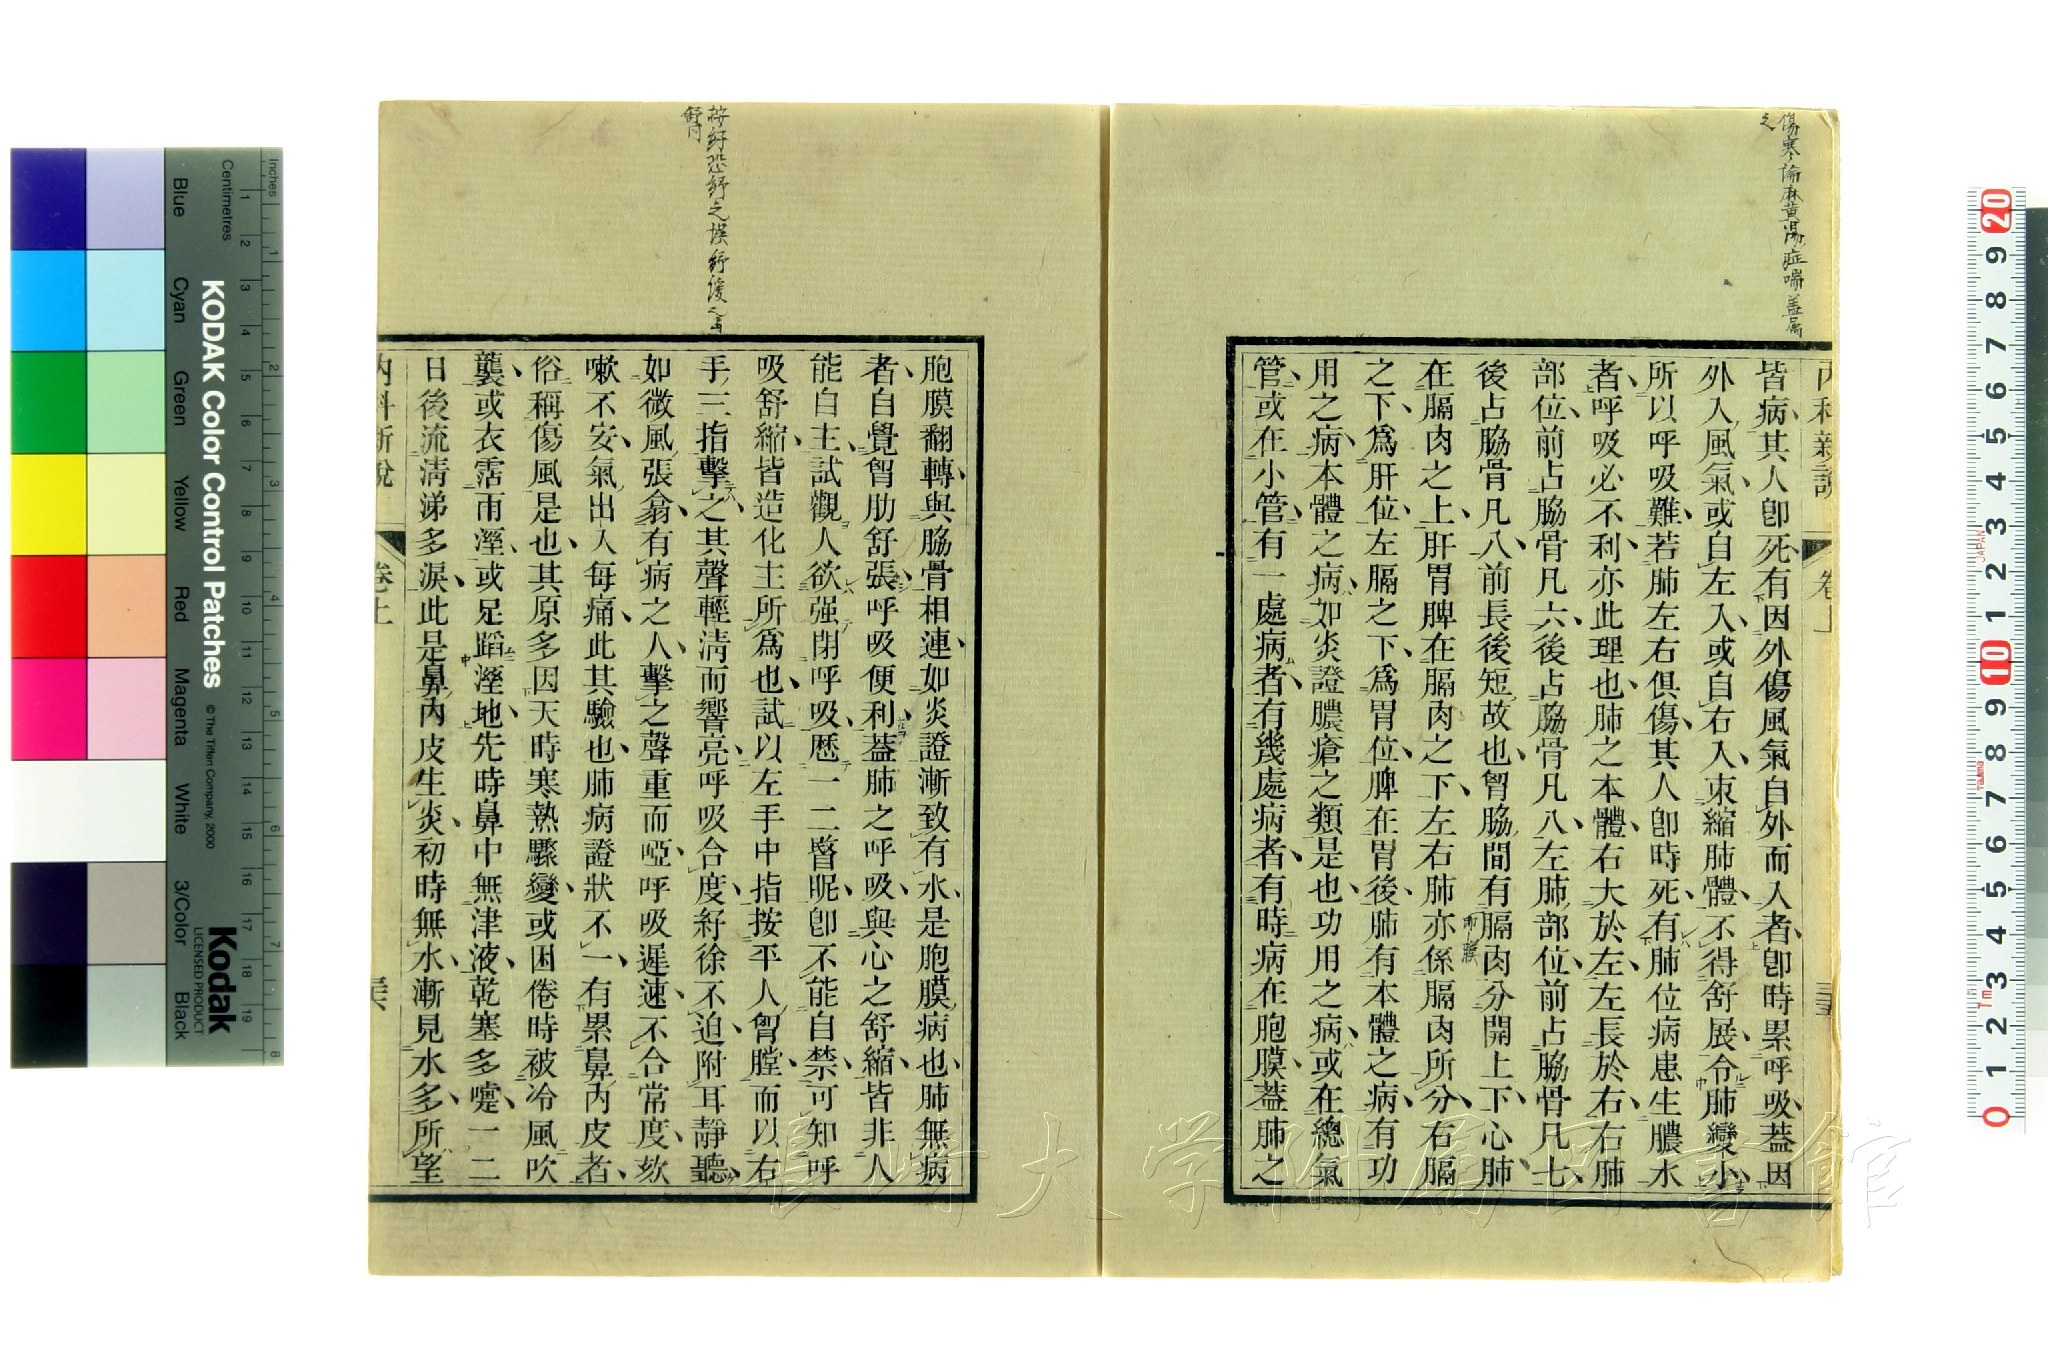 傷寒論麻黄湯症喘蓋属
之
内科新說 卷上
皆病其人卽死有因外傷風氣自外而入者卽時累呼吸蓋因
外入風氣或自左入或自右入束縮肺體不得舒展令肺變小
所以呼吸難若肺左右俱傷其人卽時死有肺位病患生膿水
者呼吸必不利亦此理也肺之本體右大於左左長於右右肺
部位前占脇骨凡六後占脇骨凡八左肺部位前占脇骨凡七
後占脇骨凡八前長後短故也胷脇間有膈肉分開上下心肺
在膈肉之上肝胃脾在膈肉之下左右肺亦係膈肉所分右膈
之下爲肝位左膈之下爲胃位脾在胃後肺有本體之病有功
用之病本體之病如炎證膿瘡之類是也功用之病或在總氣
管或在小管有一處病者有幾處病者有時病在胞膜蓋肺之
按紆恐紓之誤紓緩之
胞膜翻轉與脇骨相連如炎證漸致有水是胞膜病也肺無病
者自覺胷肋舒張呼吸便利蓋肺之呼吸與心之舒縮皆非人
能自主試觀人欲强閉呼吸歷一二晷昵卽不能自禁可知呼
吸舒縮皆造化主所爲也試以左手中指按平人胷膛而以右
手三指擊之其聲輕清而響亮呼吸合度紆徐不迫附耳靜聽
如微風張翕有病之人擊之聲重而啞呼吸遲速不合常度欬
嗽不安氣出入每痛此其驗也肺病證狀不一有累鼻內皮者
俗稱傷風是也其原多因天時寒熱驟變或困倦時被冷風吹
襲或衣霑雨溼或足蹈溼地先時鼻中無津液乾塞多嚏一二
日後流清涕多淚此是鼻內皮生炎初時無水漸見水多所望
内科新說 卷上
長崎大学附属図書館
KODAK Color Control Patches
Kodak
LICENSED PRODUCT
© The Tiffen Company, 2000
Inches
Centimetres
Blue
Cyan
Green
Yellow
Red
Magenta
White
3/Color
Black